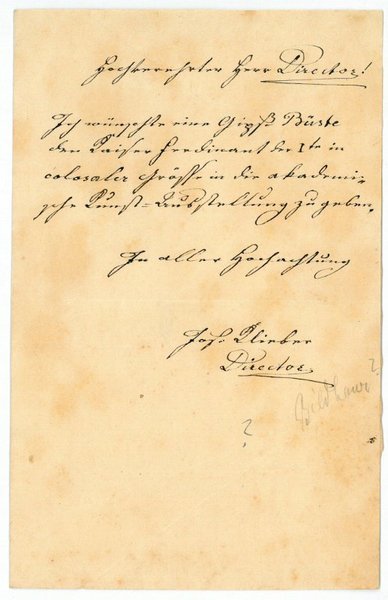 Hochverehrter Herr Director!
Ich wünschte eine Gipß Büste
den Kaiser Ferdinant der Ite in
colosaler Grösse in die akademi-
sche Kunst-Ausstellung zu geben.
In aller Hochachtung
Jos. Klieber
Director
Bildhauer?
?